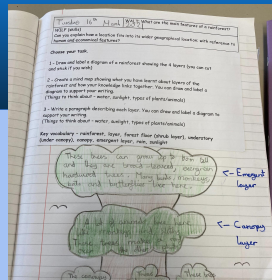 Tuesday 16th March 2021
WALT: What are the main features of a rainforest?
WILF (skills)
Can you explain how a location fits into its wider geographical location, with reference to
human and economical features?
Choose your task.
1 - Draw and label a diagram of a rainforest showing the 4 layers (you can cut
and stick if you wish)
2 - Create a mind map showing what you have learnt about layers of the
rainforest and how your knowledge links together. You can draw and label a
diagram to support your writing.
(Things to think about - water, sunlight, types of plants/animals)
3 - Write a paragraph describing each layer. You can draw and label a diagram to
support your writing.
(Things to think about - water, sunlight, types of plants/animals)
Key vocabulary - rainforest, layer, forest floor (shrub layer), understory
(under canopy), canopy, emergent layer, rain, sunlight
These trees can grow up to 80m tall
and they are broad-leaved, evergreen
hardwood trees. Many birds, monkeys,
bats and butterflies live here.
<- Emergent
layer
<- Canopy
layer
The canopy
These
These trees